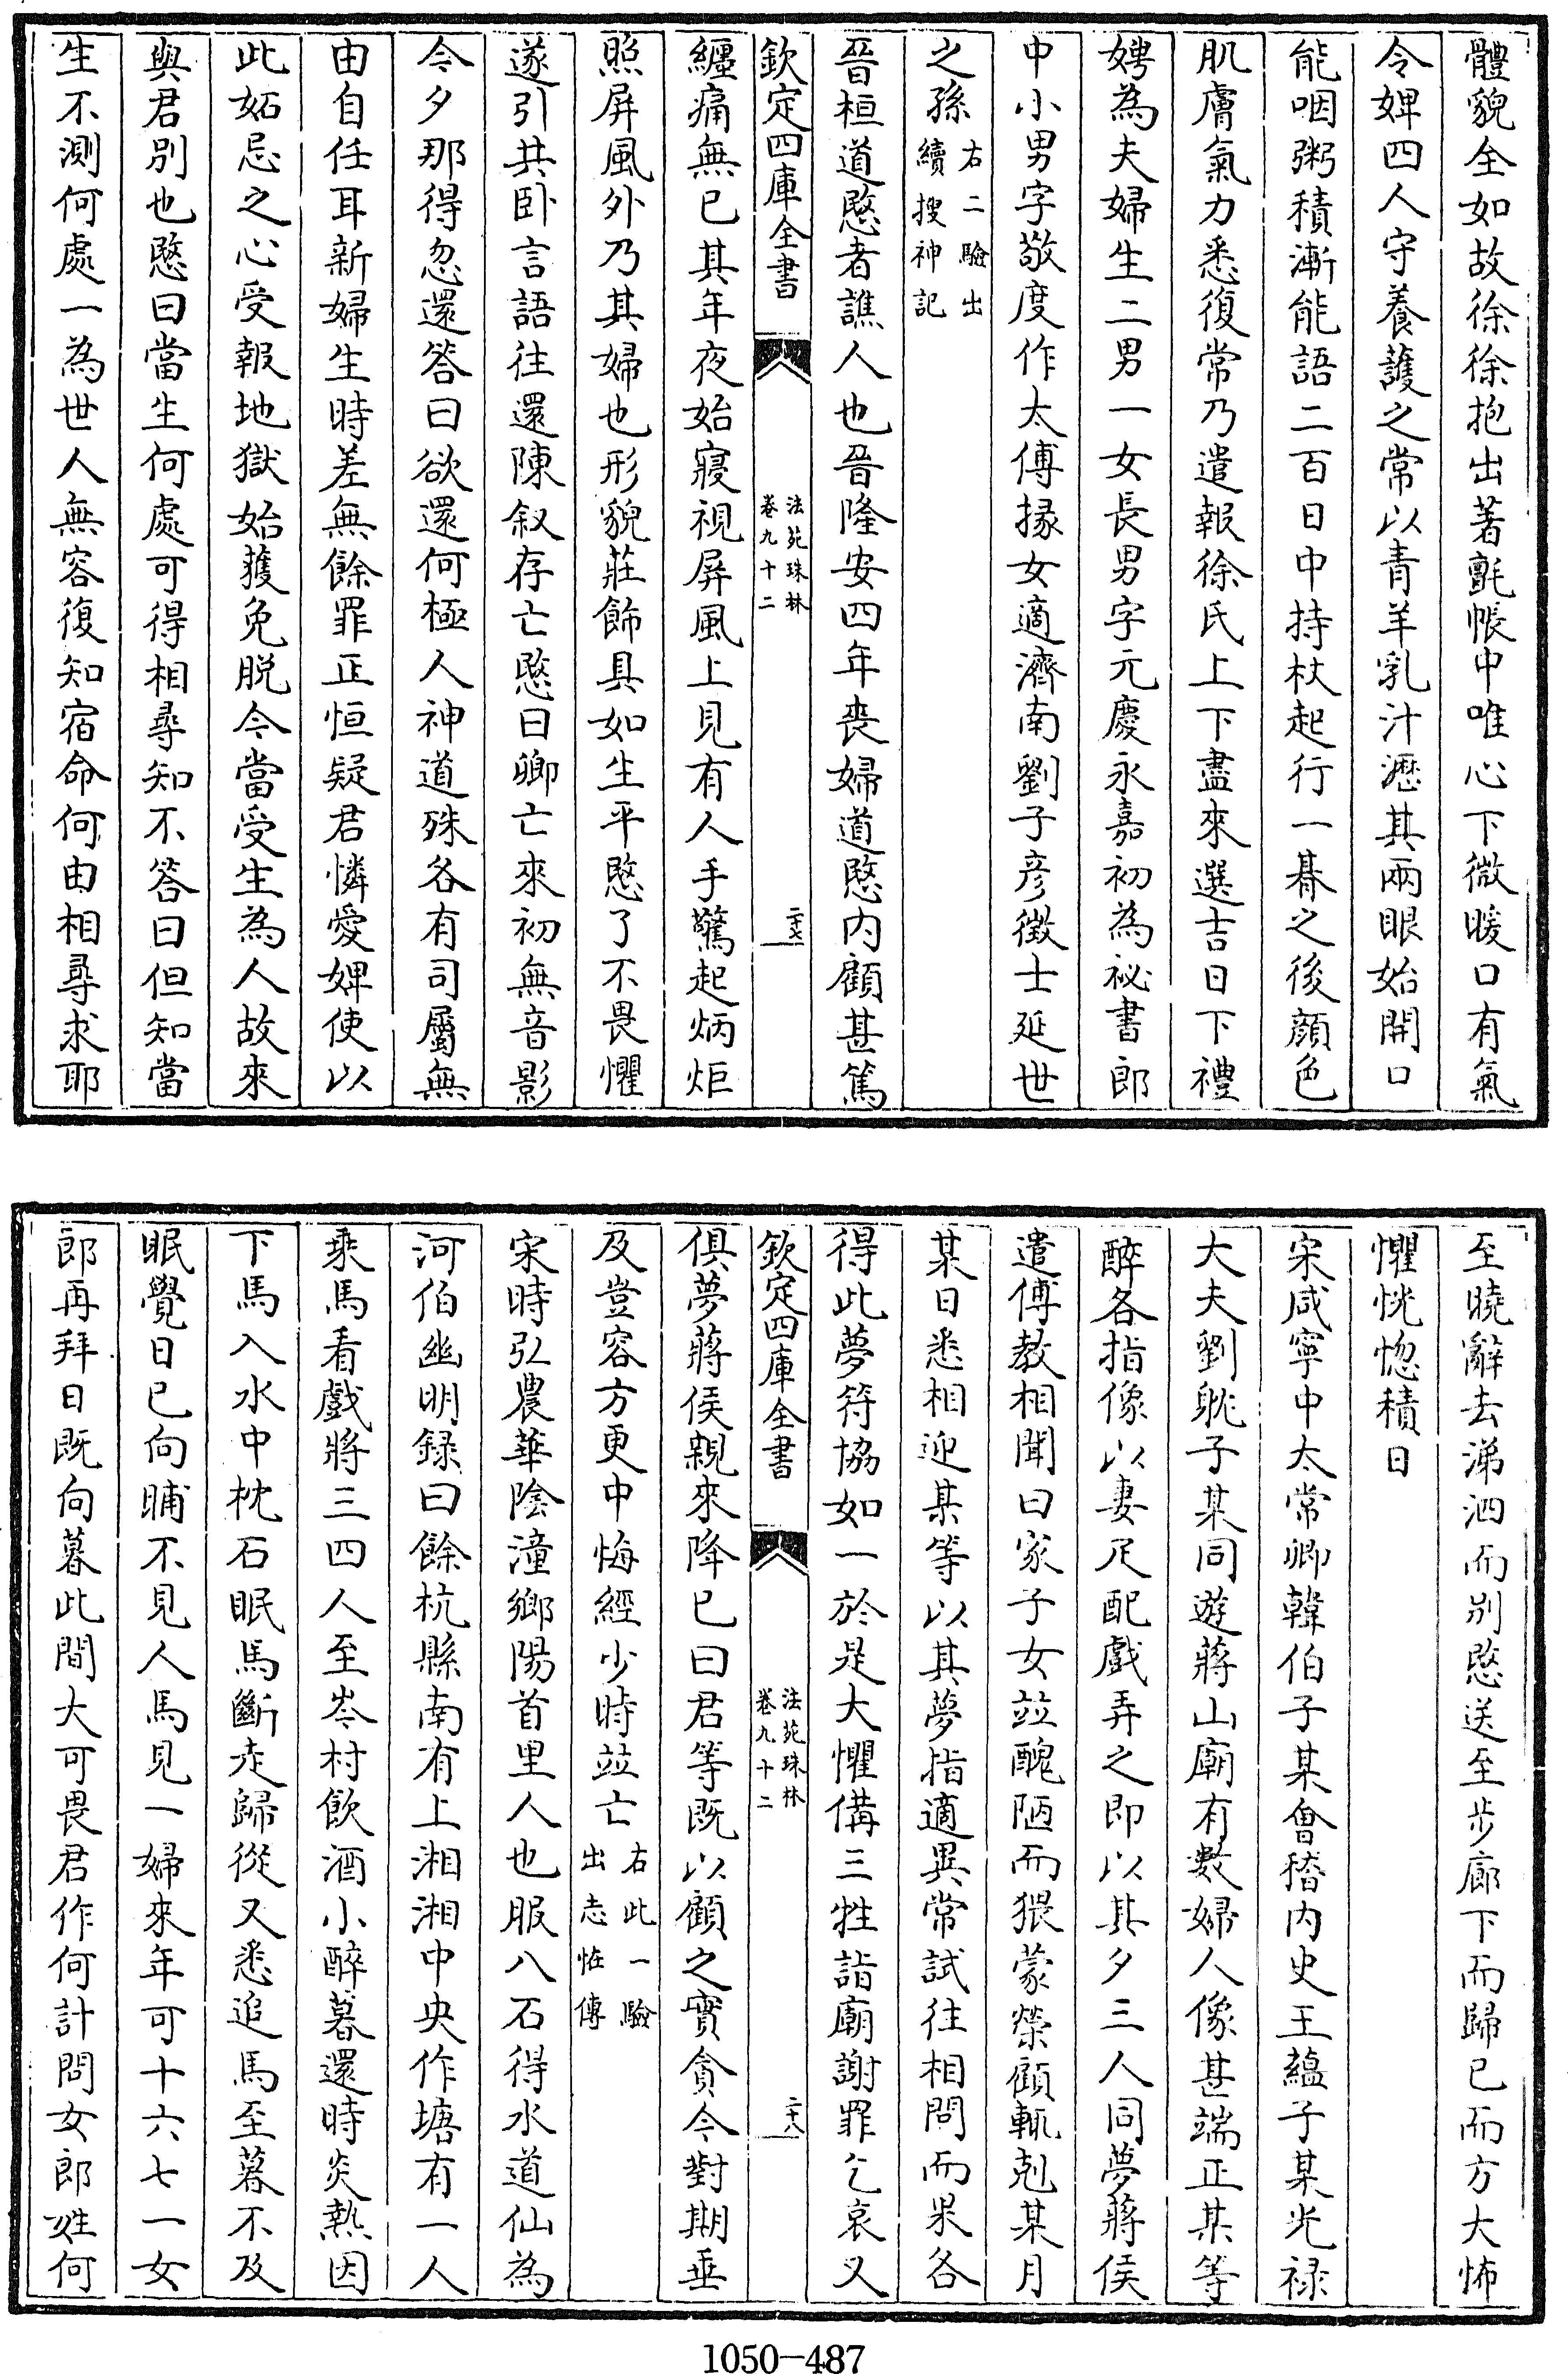 體貌全如故徐徐抱出著氈帳中唯心下微暖口有氣
令婢四人守養護之常以青羊乳汁瀝其兩眼始開口
能咽粥積漸能語二百日中持杖起行一朞之後顔色
肌膚氣力悉復常乃遣報徐氏上下盡來選吉日下禮
娉為夫婦生二男一女長男字元慶永嘉初為祕書郎
中小男字敬度作太傅掾女適濟南劉子彦徵士延世
之孫右二驗出續搜神記
晉桓道愍者譙人也晉隆安四年喪婦道愍内顧甚篤
欽定四庫全書
法苑珠林
卷九十二
二十七
纏痛無已其年夜始寢視屏風上見有人手驚起炳炬
照屏風外乃其婦也形貌莊飾具如生平愍了不畏懼
遂引共卧言語往還陳叙存亡愍曰卿亡來初無音影
今夕那得忽還答曰欲還何極人神道殊各有司屬無
由自任耳新婦生時差無餘罪正恒疑君憐愛婢使以
此妬忌之心受報地獄始獲免脱今當受生為人故來
與君別也愍曰當生何處可得相尋知不答曰但知當
生不測何處一為世人無容復知宿命何由相尋求耶
至曉辭去涕泗而别愍送至步廊下而歸已而方大怖
懼恍惚積日
宋咸寧中太常卿韓伯子某會稽内史王藴子某光禄
大夫劉耽子某同遊蔣山廟有數婦人像甚端正某等
醉各指像以妻疋配戲弄之即以其夕三人同夢蔣侯
遣傅教相聞曰家子女竝醜陋而猥蒙榮顧輒剋某月
某日悉相迎某等以其夢指適異常試往相問而果各
得此夢符協如一於是大懼備三牲詣廟謝罪乞哀又
欽定四庫全書
法苑珠林
卷九十二
二十八
俱夢蔣侯親來降已曰君等既以顧之實貪令對期垂
及豈容方更中悔經少時竝亡右此一驗出志恠傳
宋時弘農華陰潼鄉陽首里人也服八石得水道仙為
河伯幽明録曰餘杭縣南有上湘湘中央作塘有一人
乘馬看戲將三四人至岑村飲酒小醉暮還時炎熱因
下馬入水中枕石眠馬斷走歸從又悉追馬至暮不及
眠覺日已向晡不見人馬見一婦來年可十六七一女
郎再拜日既向暮此間大可畏君作何計問女郎姓何
1050-487